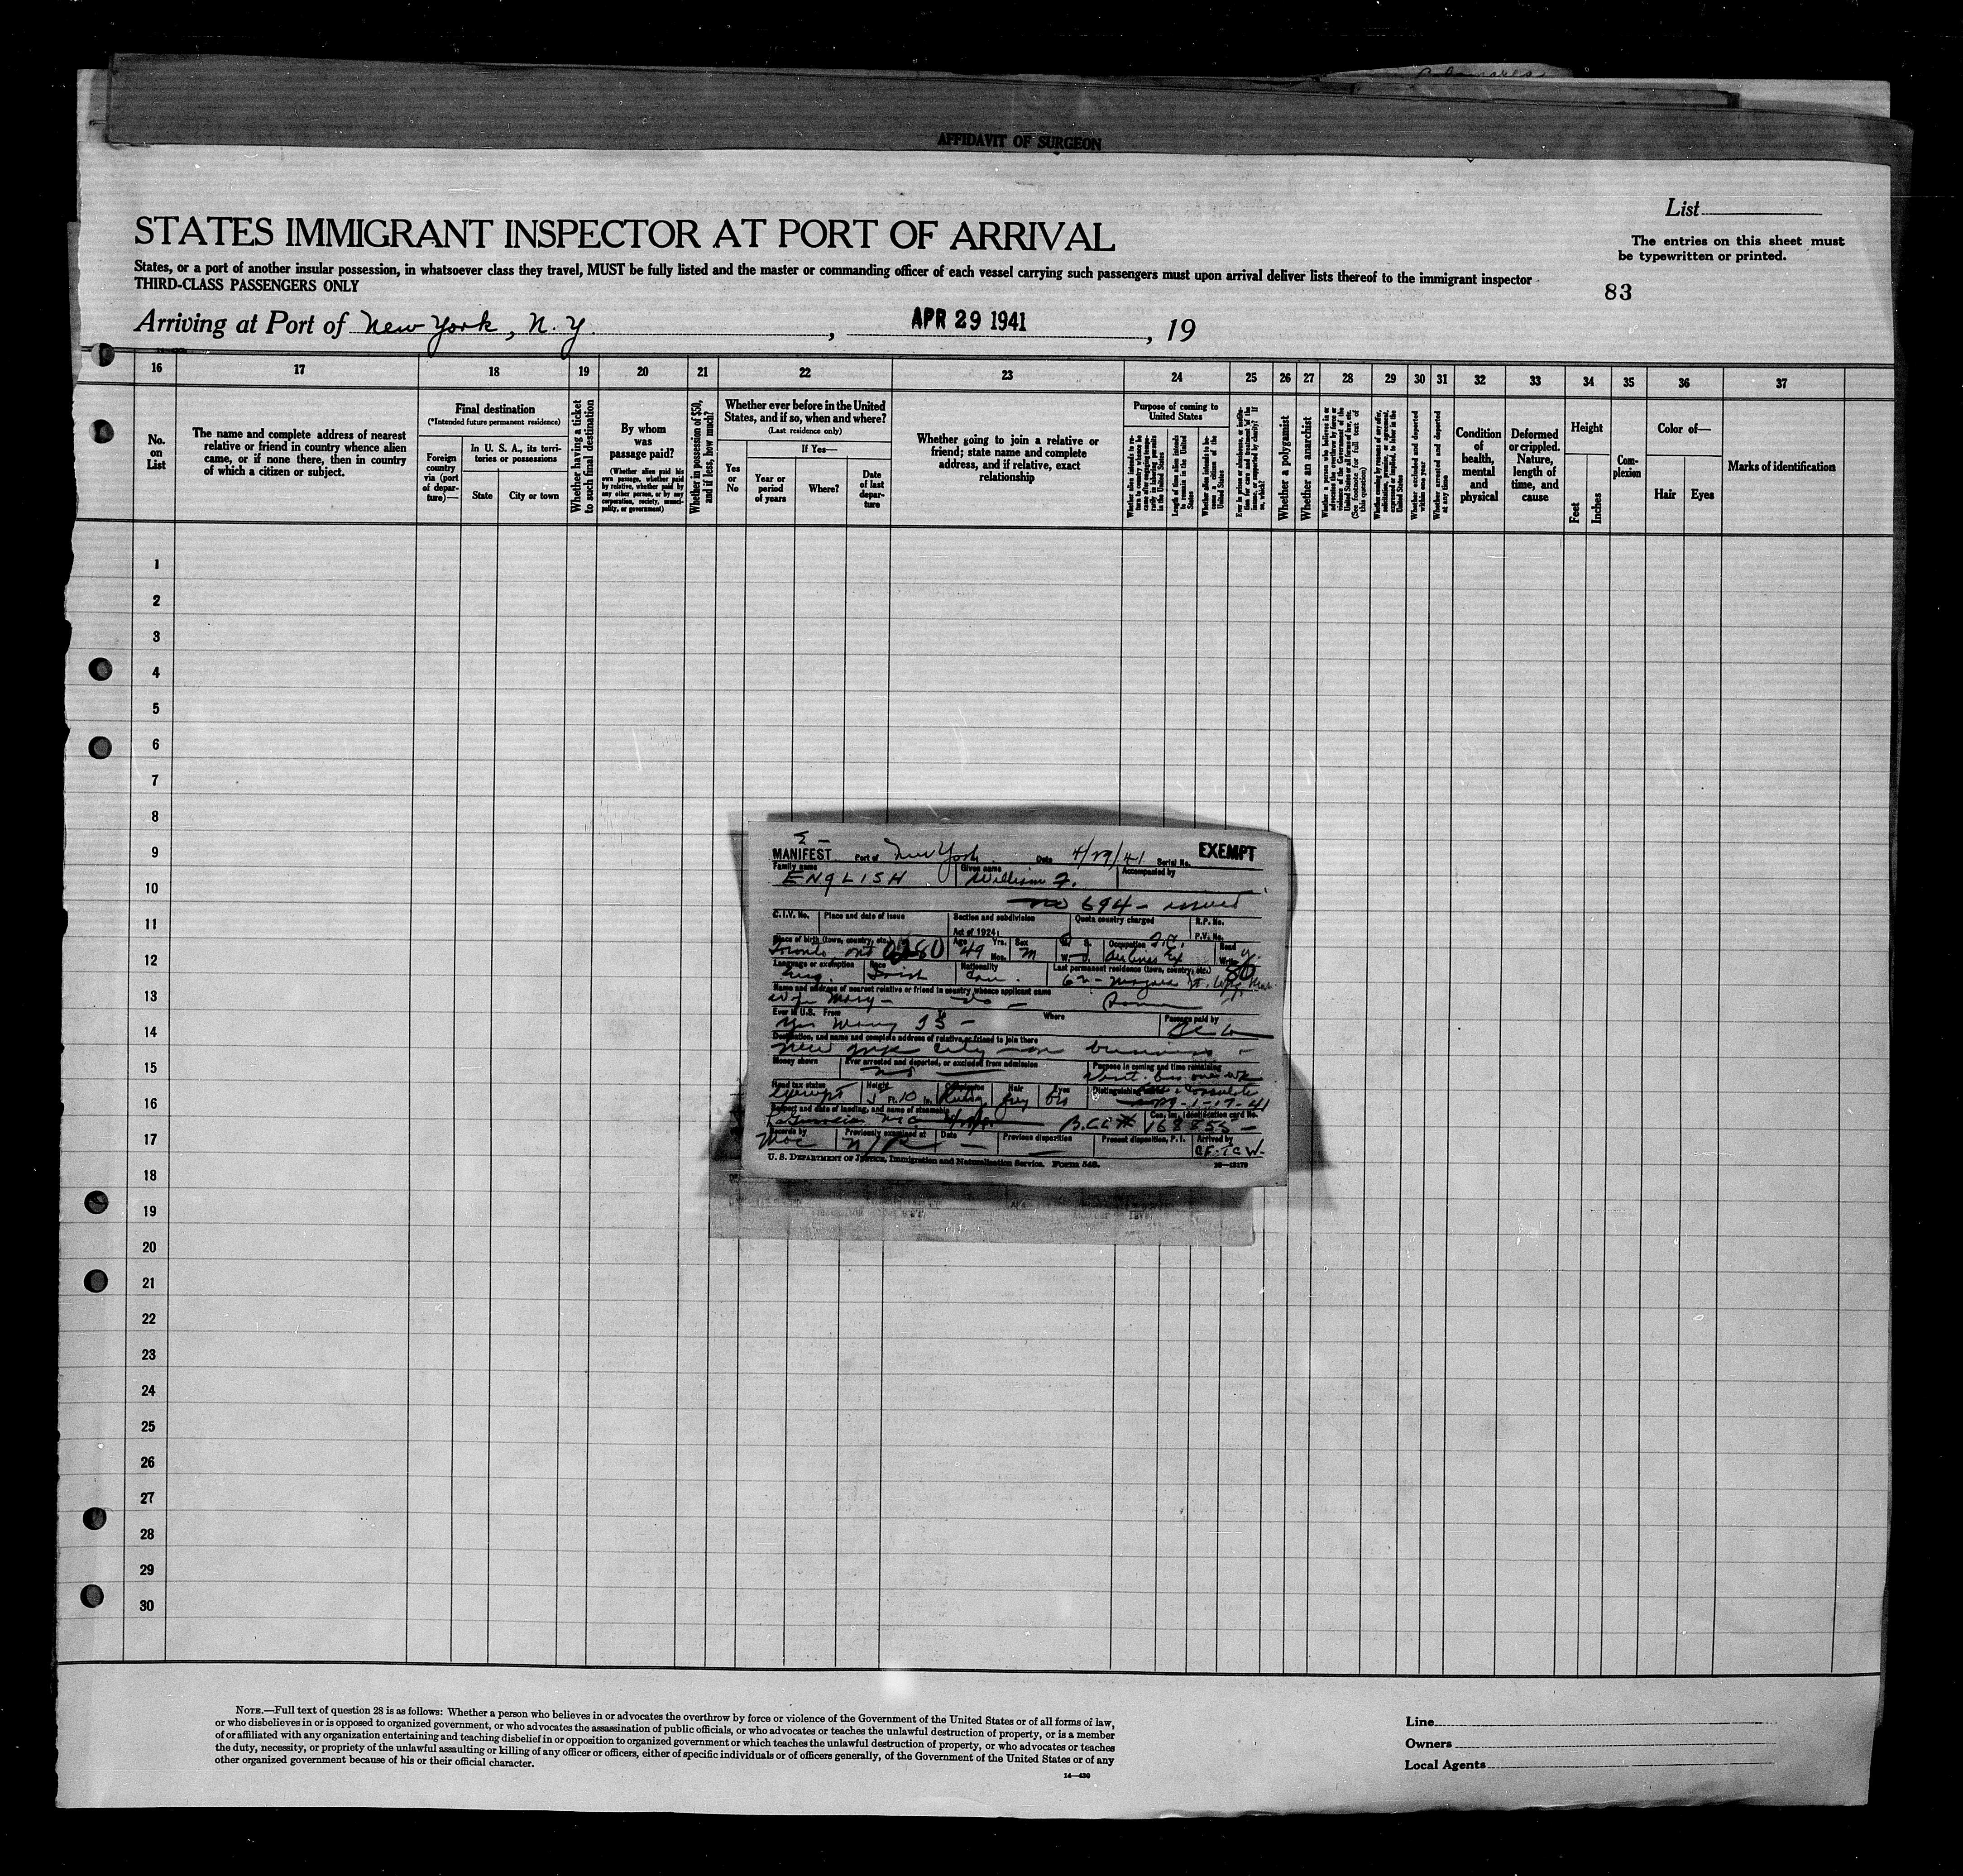 AFFIDAVIT OF SURGEON
STATES IMMIGRANT INSPECTOR AT PORT OF ARRIVAL
List
The entries on this sheet must
be typewritten or printed.
States, or a port of another insular possession, in whatsoever class they travel, MUST be fully listed and the master or commanding officer of each vessel carrying such passengers must upon arrival deliver lists thereof to the immigrant inspector
THIRD-CLASS PASSENGERS ONLY
83
Arriving at Port of New York, N.Y. , APR 29 1941 , 19
16 17 18 19 20 21 22 23 24 25 26 27 28 29 30 31 32 33 34 35 36 37
No. on List
The name and complete address of nearest
relative or friend in country whence alien
came, or if none there, then in country
of which a citizen or subject.
Final destination
(*Intended future permanent residence)
Foreign country via (port of departure)—
In U. S. A., its territories or possessions
State
City or town
Whether having a ticket to such final destination
By whom was passage paid?
(Whether alien paid his own passage, whether paid by relative, whether paid by any other person, or by any corporation, society, municipality, or government)
Whether in possession of $50, and if less, how much?
Whether ever before in the United
States, and if so, when and where?
(Last residence only)
Yes or No
If Yes—
Year or period of years
Where?
Date of last departure
Whether going to join a relative or
friend; state name and complete
address, and if relative, exact
relationship
Purpose of coming to
United States
Length of time alien intends to remain in the United States
Whether a polygamist
Whether an anarchist
(See footnote for full text of this question)
Whether excluded and deported within one year
Whether arrested and deported at any time
Condition of health, mental and physical
Deformed or crippled. Nature, length of time, and cause
Height
Feet
Inches
Complexion
Color of—
Hair
Eyes
Marks of identification
1
2
3
4
5
6
7
8
9
10
11
12
13
14
15
16
17
18
19
20
21
22
23
24
25
26
27
28
29
30
MANIFEST Port of New York Date 4/29/41 Serial No. EXEMPT
Family name ENGLISH Given name William F. Accompanied by
no 694 - issued
C.I.V. No. Place and date of issue Section and subdivision Act of 1924: Quota country charged R.P. No. P.V. No.
Place of birth (town, country, etc.) Toronto Ont Age 49 Yrs. Mos. Sex M Occupation Read Write
Language or exemption Eng Race Irish Nationality Can. Last permanent residence (town, country, etc.)
Name and address of nearest relative or friend in country whence applicant came
Wife Mary -
Ever in U.S. From Where Passage paid by
Yes many
Destination, and name and complete address of relative or friend to join there
New York City - on business -
Money shown Ever arrested and deported, or excluded from admission no Purpose in coming and time remaining
Head tax status Exempt Height 5 Ft. 10 In. Complexion Hair Grey Eyes Distinguishing marks
Seaport and date of landing, and name of steamship Can. Im. Identification card No.
B.C.C.# 168855 -
Records by Previously examined at Date Previous disposition Present disposition, P. I. Arrived by
N/R CF-TCW-
U. S. DEPARTMENT OF JUSTICE, Immigration and Naturalization Service. FORM 548. 16—13179
NOTE.—Full text of question 28 is as follows: Whether a person who believes in or advocates the overthrow by force or violence of the Government of the United States or of all forms of law,
or who disbelieves in or is opposed to organized government, or who advocates the assassination of public officials, or who advocates or teaches the unlawful destruction of property, or is a member
of or affiliated with any organization entertaining and teaching disbelief in or opposition to organized government or which teaches the unlawful destruction of property, or who advocates or teaches
the duty, necessity, or propriety of the unlawful assaulting or killing of any officer or officers, either of specific individuals or of officers generally, of the Government of the United States or of any
other organized government because of his or their official character.
14—430
Line
Owners
Local Agents